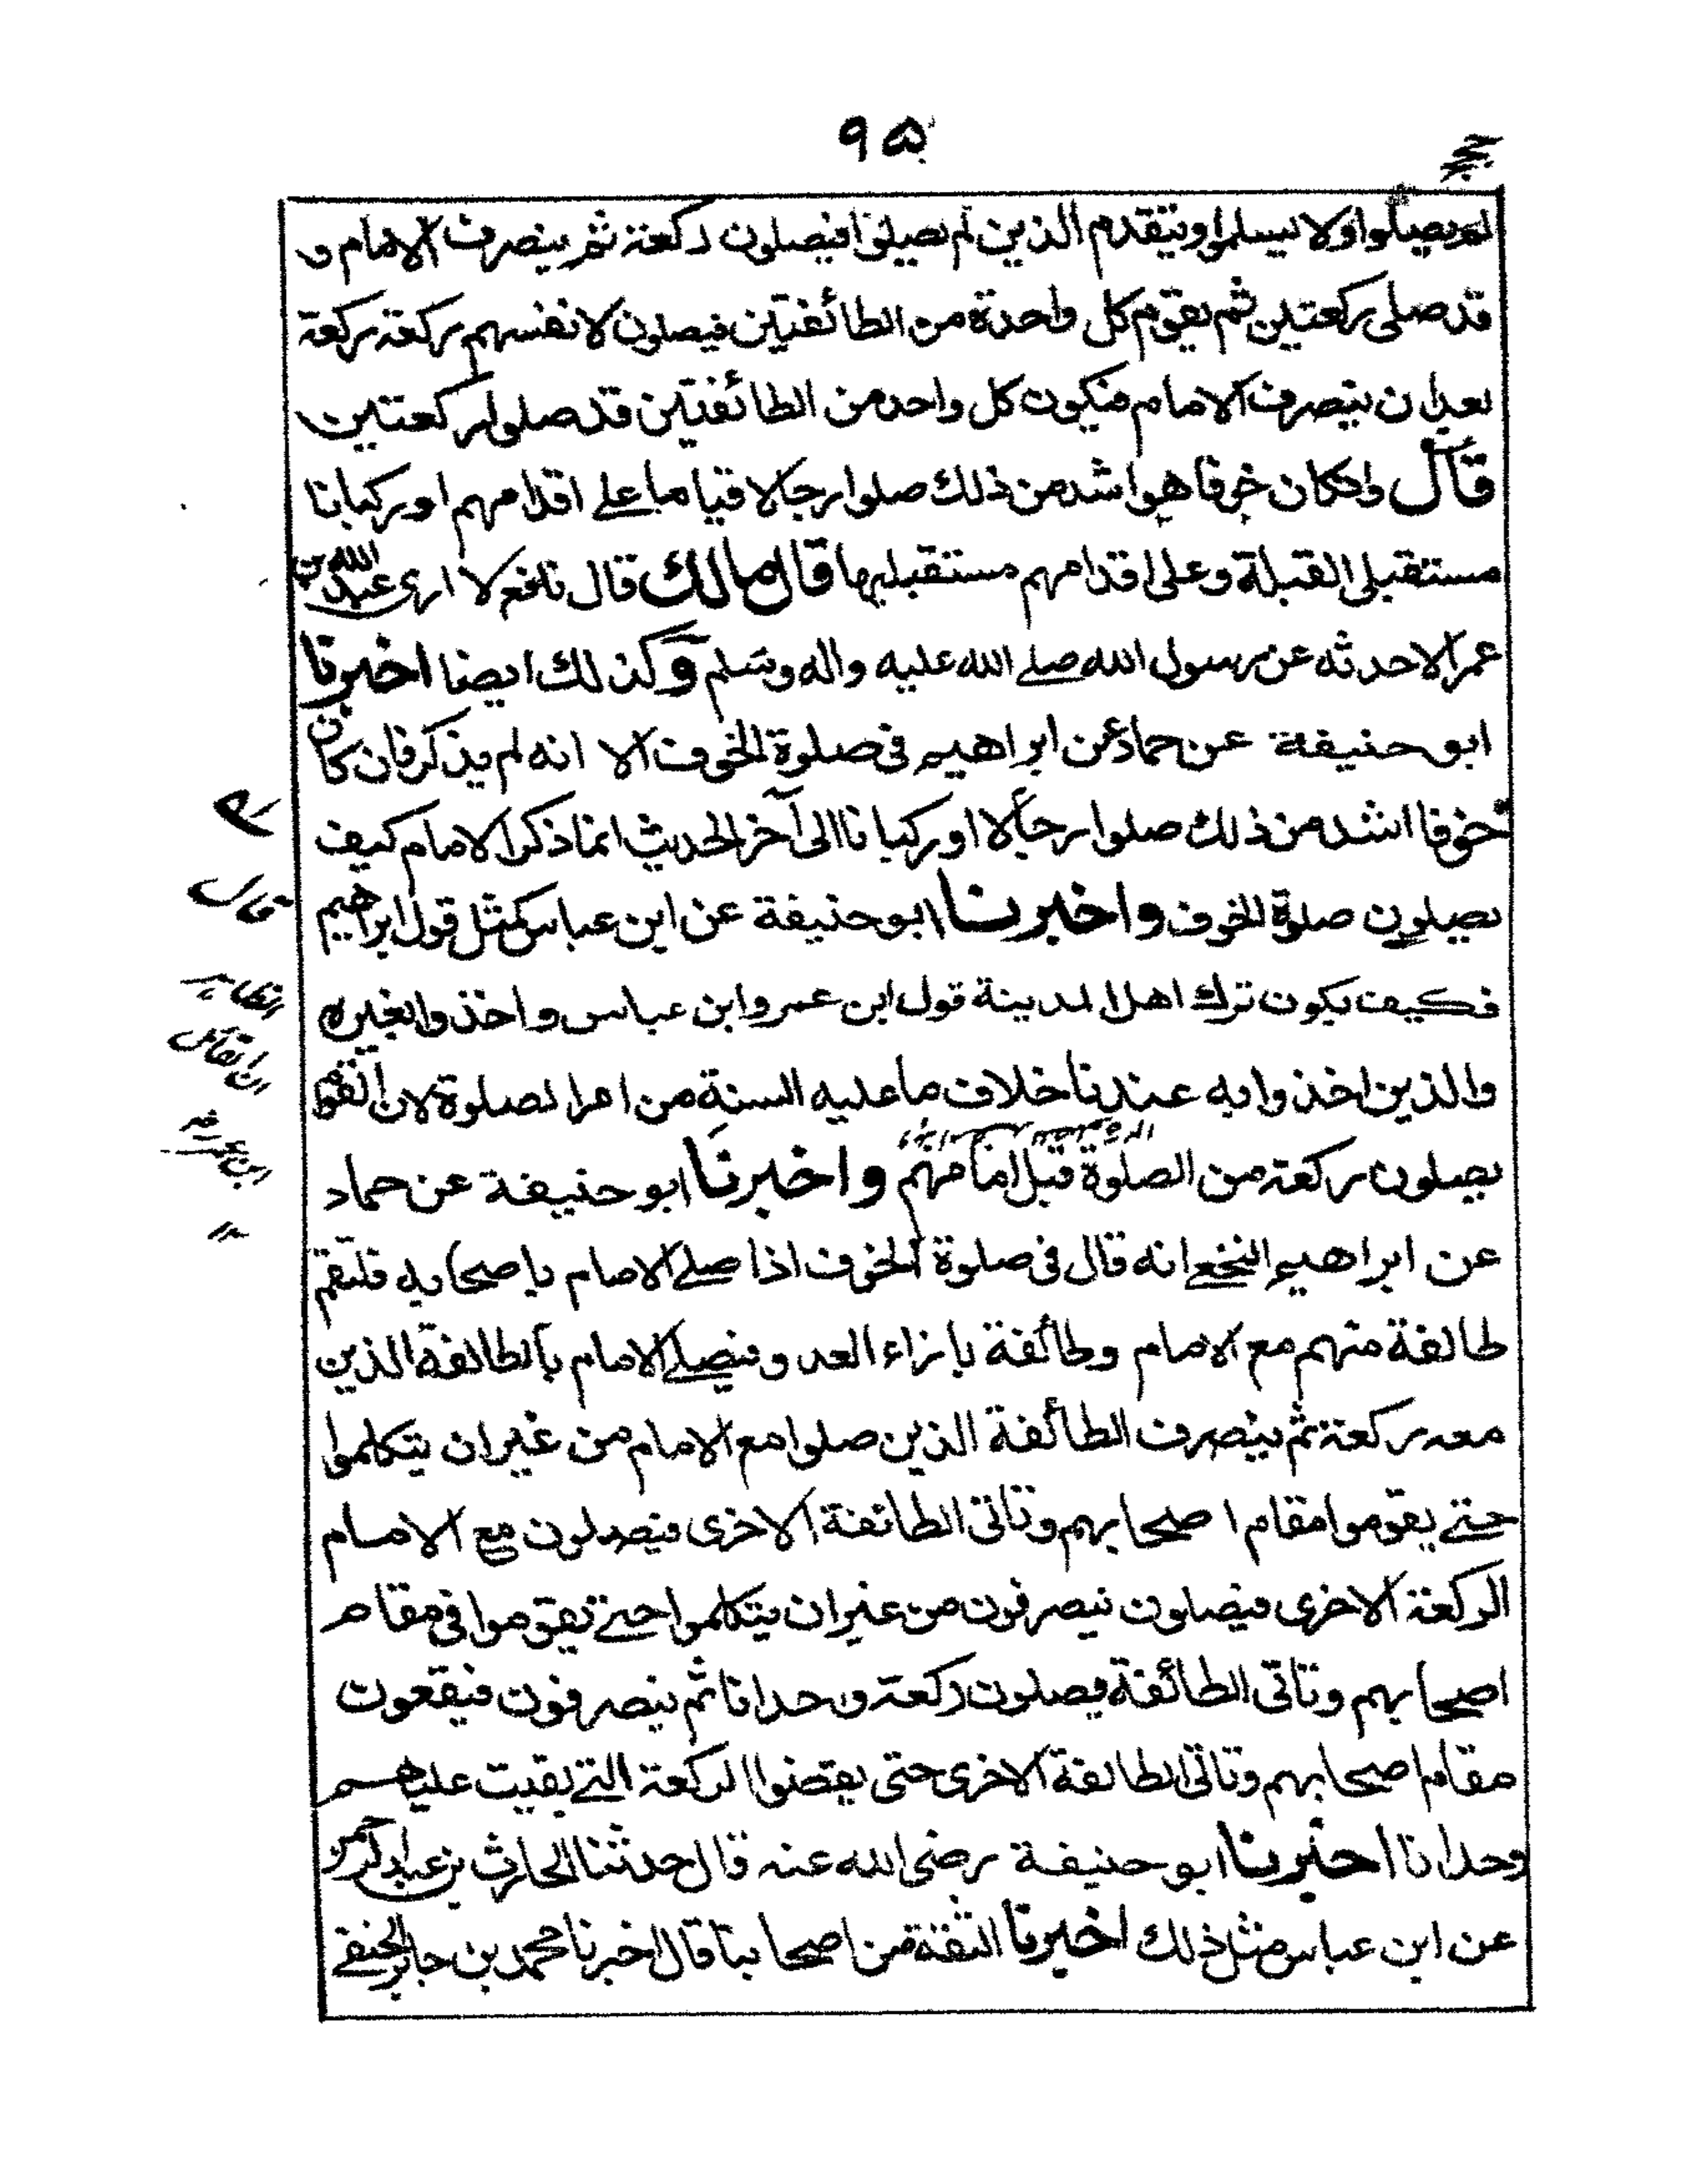 ٩٥
لم يصلوا ولا يسلموا ويتقدم الذين لم يصلوا فيصلون ركعة ثم ينصرف الامام و
قد صلى ركعتين ثم يقوم كل واحدة من الطائفتين فيصلون لانفسهم ركعة ركعة
بعد ان ينصرف الامام فيكون كل واحد من الطائفتين قد صلوا ركعتين
قال وانكان خوفا هوا شد من ذلك صلوا رجالا قياما على اقدامهم او ركبانا
مستقبلى القبلة وعلى اقدامهم مستقبليها قال مالك قال نافع لا ارى عبد الله بن
عمر الا حدثه عن رسول الله صلے الله عليه واله وسلم وكذلك ايضا اخبرنا
ابو حنيفة عن حماد عن ابراهيم فى صلوة الخوف الا انه لم يذكر فان كان
خوفا اشد من ذلك صلوا رجالا او ركبانا الى آخر الحديث انما ذكر الامام كيف
يصلون صلوة الخوف واخبرنا ابو حنيفة عن ابن عباس كمثل قول ابراهيم
فكيف يكون ترك اهل المدينة قول ابن عمر وابن عباس واخذوا بغيره
والذين اخذوا به عندنا خلاف ما عليه السنة من امر الصلوة لان القوم
يصلون ركعة من الصلوة قبل امامهم واخبرنا ابو حنيفة عن حماد
عن ابراهيم النخعے انه قال فى صلوة الخوف اذا صلے الامام باصحابه فلتقم
طائفة منهم مع الامام وطائفة بازاء العدو فيصلے الامام بالطائفة الذين
معه ركعة ثم ينصرف الطائفة الذين صلوا مع الامام من غير ان يتكلموا
حتے يقوموا مقام اصحابهم وتاتى الطائفة الاخرى فيصلون مع الامام
الركعة الاخرى فيصلون ينصرفون من غير ان يتكلموا حتے يقوموا فى مقام
اصحابهم وتاتى الطائفة فيصلون ركعة وحدانا ثم ينصرفون فيقعون
مقام اصحابهم وتاتى الطائفة الاخرى حتى يقضوا الركعة التے بقيت عليهم
وحدانا اخبرنا ابو حنيفة رضى الله عنه قال حدثنا الحارث بن عبد الرحمن
عن ابن عباس مثل ذلك اخبرنا الثقة من اصحابنا قال اخبرنا محمد بن جابر الحنفے
قال
الظاهر
ان القائل